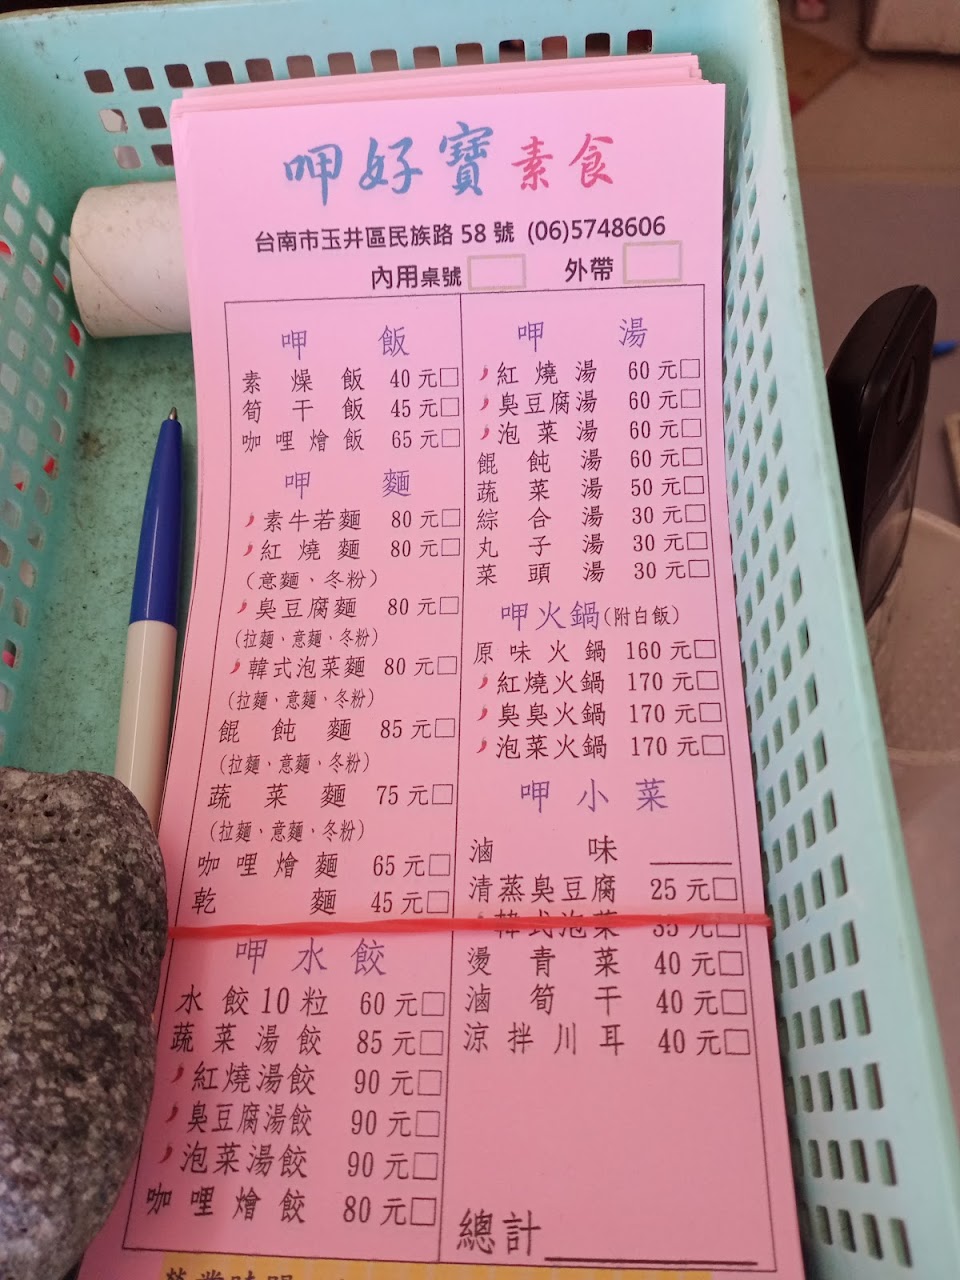 呷好寶素食
台南市玉井區民族路 58 號 (06)5748606
內用桌號 外帶
呷飯
素燥飯 40 元□
筍干飯 45 元□
咖哩燴飯 65 元□
呷麵
素牛若麵 80 元□
紅燒麵 80 元□
(意麵、冬粉)
臭豆腐麵 80 元□
(拉麵、意麵、冬粉)
韓式泡菜麵 80 元□
(拉麵、意麵、冬粉)
餛飩麵 85 元□
(拉麵、意麵、冬粉)
蔬菜麵 75 元□
(拉麵、意麵、冬粉)
咖哩燴麵 65 元□
乾麵 45 元□
呷水餃
水餃10粒 60 元□
蔬菜湯餃 85 元□
紅燒湯餃 90 元□
臭豆腐湯餃 90 元□
泡菜湯餃 90 元□
咖哩燴餃 80 元□
呷湯
紅燒湯 60 元□
臭豆腐湯 60 元□
泡菜湯 60 元□
餛飩湯 60 元□
蔬菜湯 50 元□
綜合湯 30 元□
丸子湯 30 元□
菜頭湯 30 元□
呷火鍋(附白飯)
原味火鍋 160 元□
紅燒火鍋 170 元□
臭臭火鍋 170 元□
泡菜火鍋 170 元□
呷小菜
滷味 ______
清蒸臭豆腐 25 元□
韓式泡菜 35 元□
燙青菜 40 元□
滷筍干 40 元□
涼拌川耳 40 元□
總計__________
營業時間